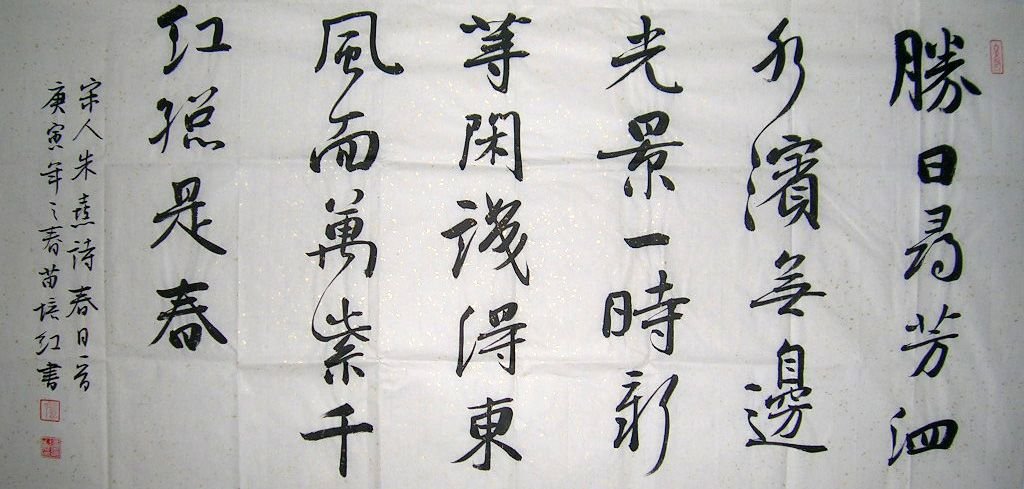 勝日尋芳泗
水濱無邊
光景一時新
等閑識得東
風面萬紫千
紅總是春
宋人朱熹詩春日一首
庚寅年之春苗培紅書